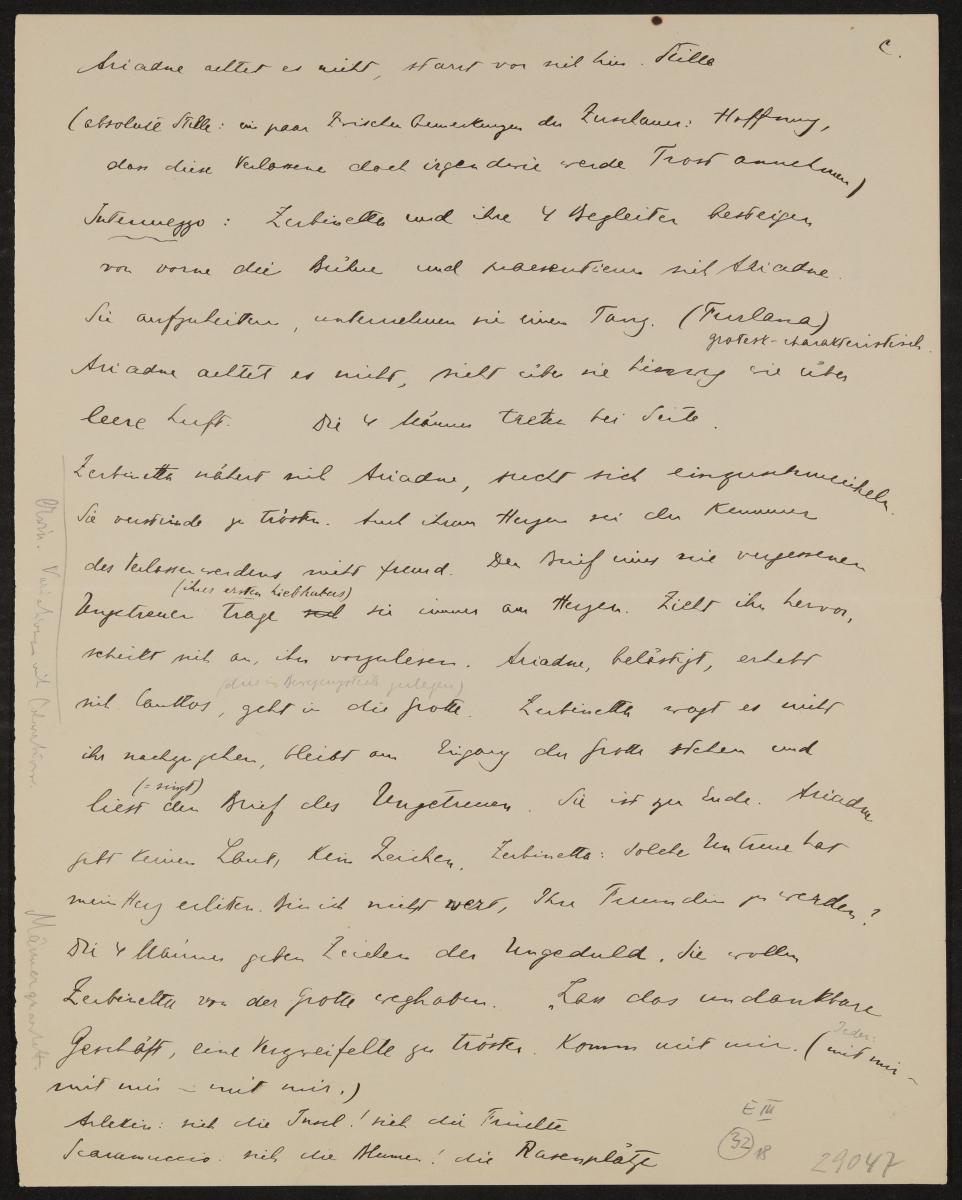 c.
Ariadne achtet es nicht, starrt vor sich hin. Stille
(absolute Stille: ein paar Zwischenbemerkungen der Zuschauer: Hoffnung,
dass diese Verlassene doch irgendwie werde Trost annehmen)
Intermezzo: Zerbinetta und ihre 4 Begleiter besteigen
von vorne die Bühne und praesentieren sich Ariadne.
Sie aufzuheitern, unternehmen sie einen Tanz. (Furlana)
grotesk-charakteristisch.
Ariadne achtet es nicht, sieht über sie hinweg wie über
leere Luft. Die 4 Männer treten bei Seite.
Zerbinetta nähert sich Ariadne, sucht sich einzuschmeicheln.
Sie verstünde zu trösten. Auch ihrem Herzen sei der Kummer
des Verlassenwerdens nicht fremd. Den Brief eines nie vergessenen
(ihres ersten Liebhabers)
Ungetreuen trage sie immer am Herzen. Zieht ihn hervor,
schickt sich an, ihn vorzulesen. Ariadne, belästigt, erhebt
(dies in Bewegungsteil gelegen)
sich lautlos, geht in die Grotte. Zerbinetta wagt es nicht
ihr nachzugehen, bleibt am Eingang der Grotte stehen und
(= singt)
liest den Brief des Ungetreuen. Sie ist zu Ende. Ariadne
gibt keinen Laut, kein Zeichen. Zerbinetta: Solche Untreue hat
mein Herz erlitten. Bin ich nicht wert, Ihre Freundin zu werden?
Die 4 Männer geben Zeichen der Ungeduld. Sie wollen
Zerbinetta von der Grotte weghaben. „Lass das undankbare
Geschäft, eine Verzweifelte zu trösten. Komm mit mir. (mit mir –
Jeder:
mit mir – mit mir.)
Arlekin: sieh die Insel! sieh die Früchte
Scaramuccio: sieh die Blumen! die Rasenplätze
Variationen mit
Männerquartett.
E III
32
18
29047